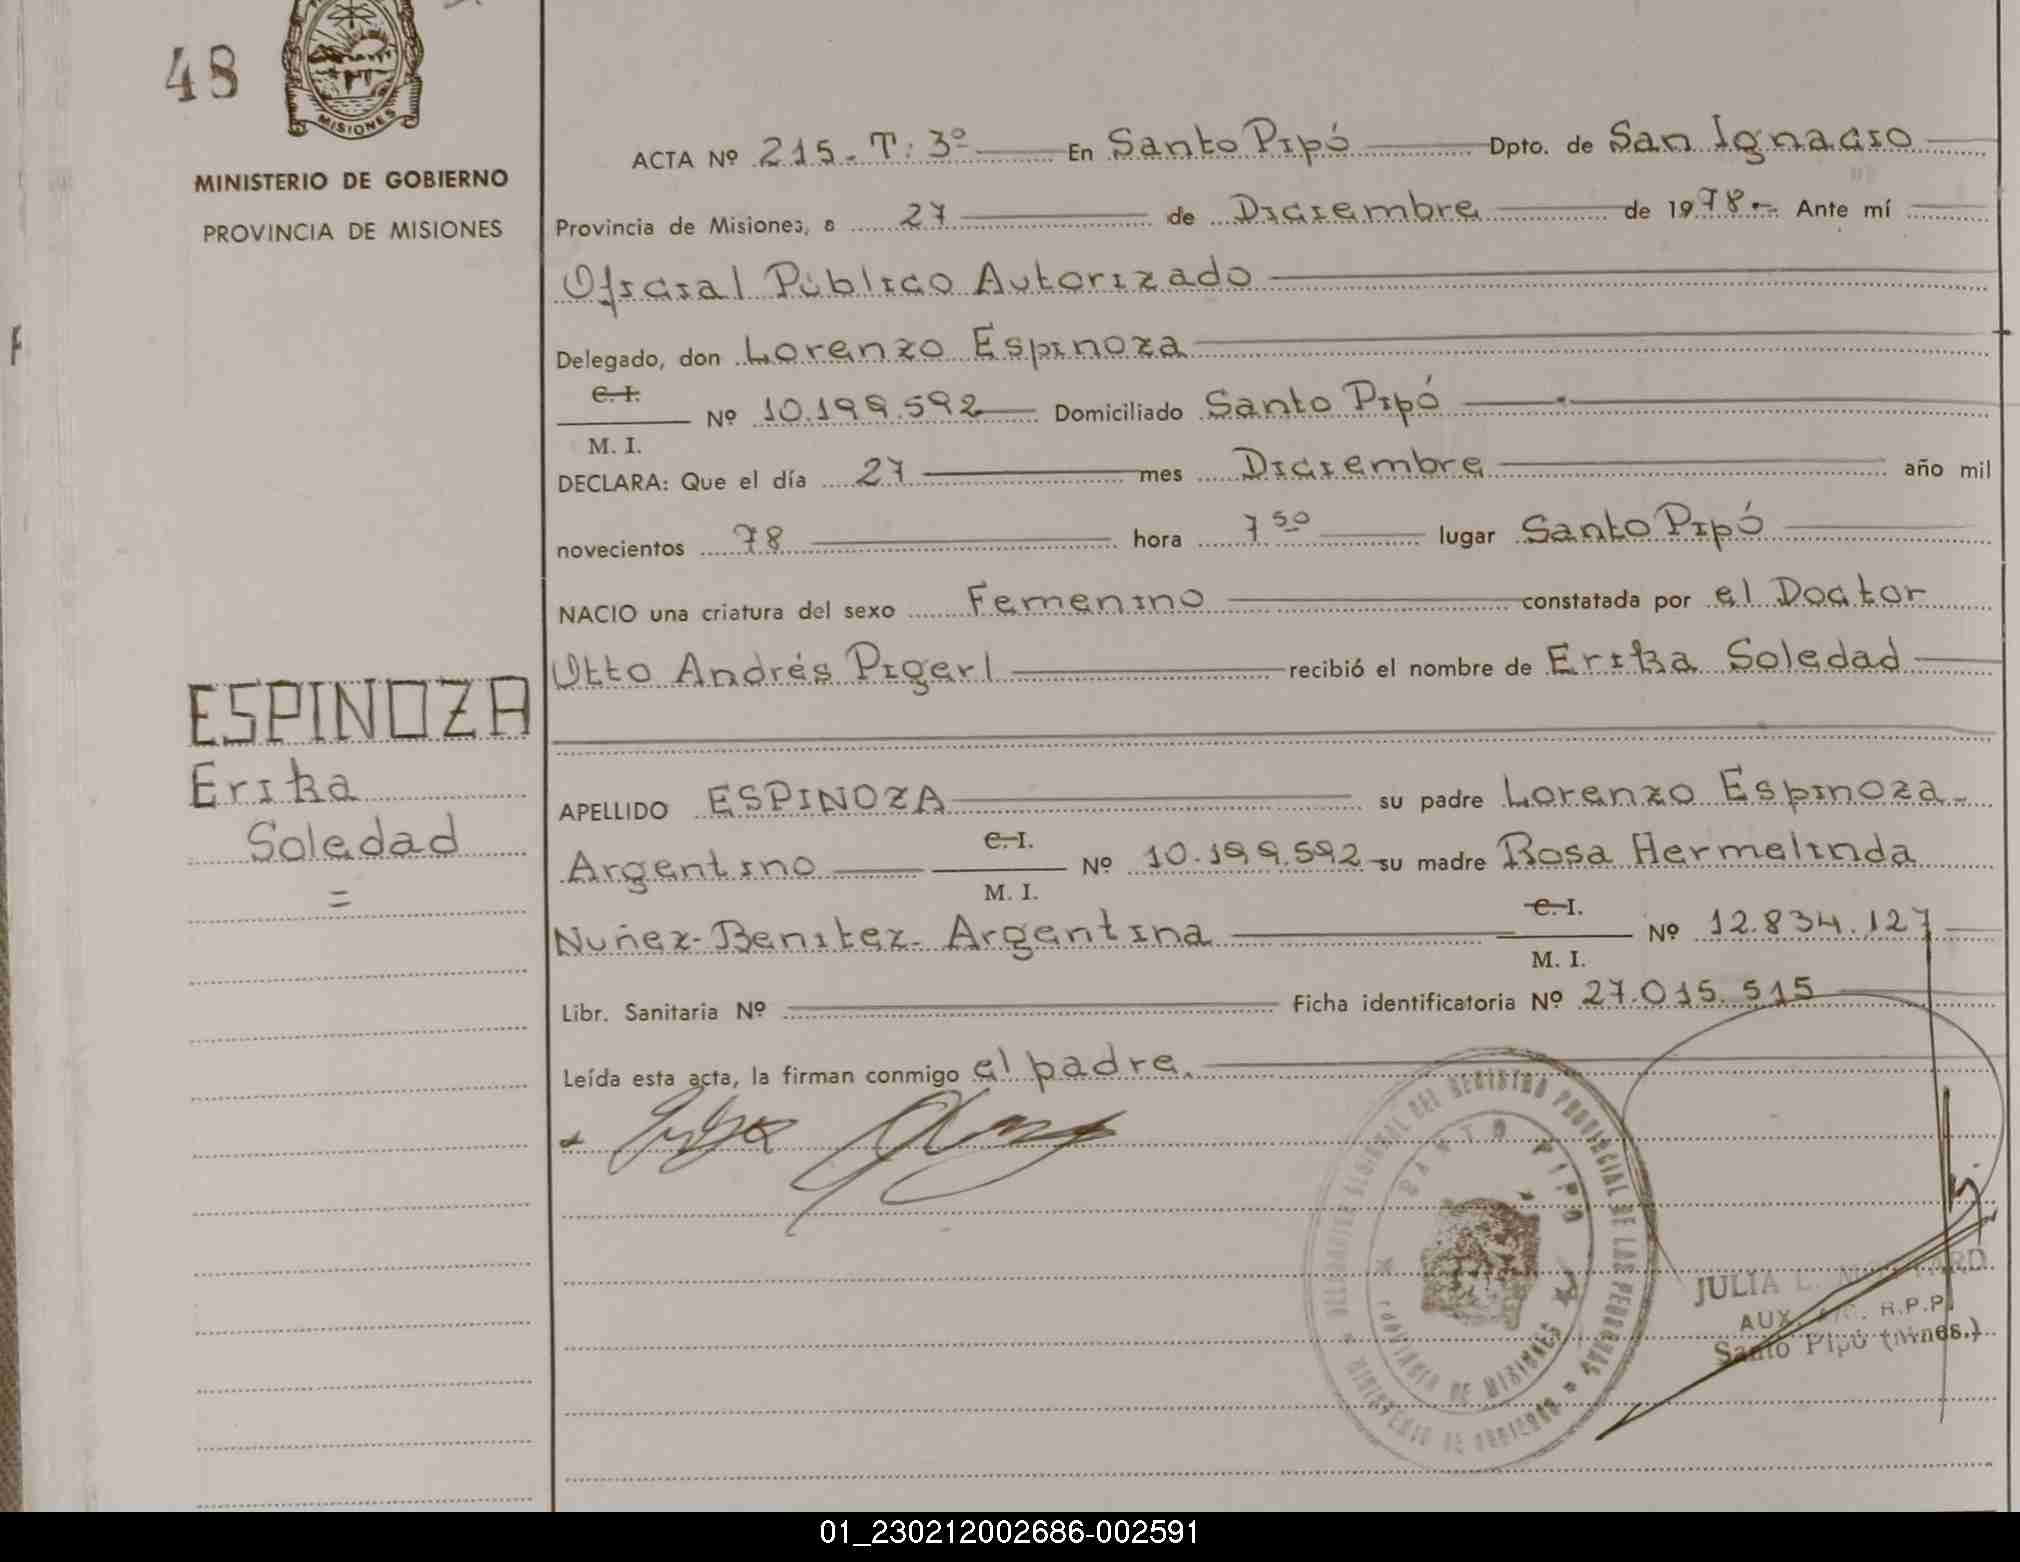 48
MISIONES
MINISTERIO DE GOBIERNO
PROVINCIA DE MISIONES
ESPINOZA
Erika
Soledad
=
ACTA Nº 215 - T: 3º En Santo Pipó Dpto. de San Ignacio
Provincia de Misiones, a 27 de Diciembre de 1978.- Ante mí
Oficial Público Autorizado
Delegado, don Lorenzo Espinoza
C. I.
Nº 10.199.592 Domiciliado Santo Pipó
M. I.
DECLARA: Que el día 27 mes Diciembre año mil
novecientos 78 hora 7 50 lugar Santo Pipó
NACIO una criatura del sexo Femenino constatada por el Doctor
Otto Andrés Pigerl recibió el nombre de Erika Soledad
APELLIDO ESPINOZA su padre Lorenzo Espinoza-
C. I.
Argentino Nº 10.199.592 su madre Rosa Hermelinda
M. I.
C. I.
Nuñez-Benitez- Argentina Nº 12.834.127
M. I.
Libr. Sanitaria Nº Ficha identificatoria Nº 27.015.515
Leída esta acta, la firman conmigo el padre.
DELEGACION REGIONAL DEL REGISTRO PROVINCIAL DE LAS PERSONAS
SANTO PIPO
PROVINCIA DE MISIONES
MINISTERIO DE GOBIERNO
JULIA
AUX. R.P.P.
Santo Pipó (Mnes.)
01_230212002686-002591